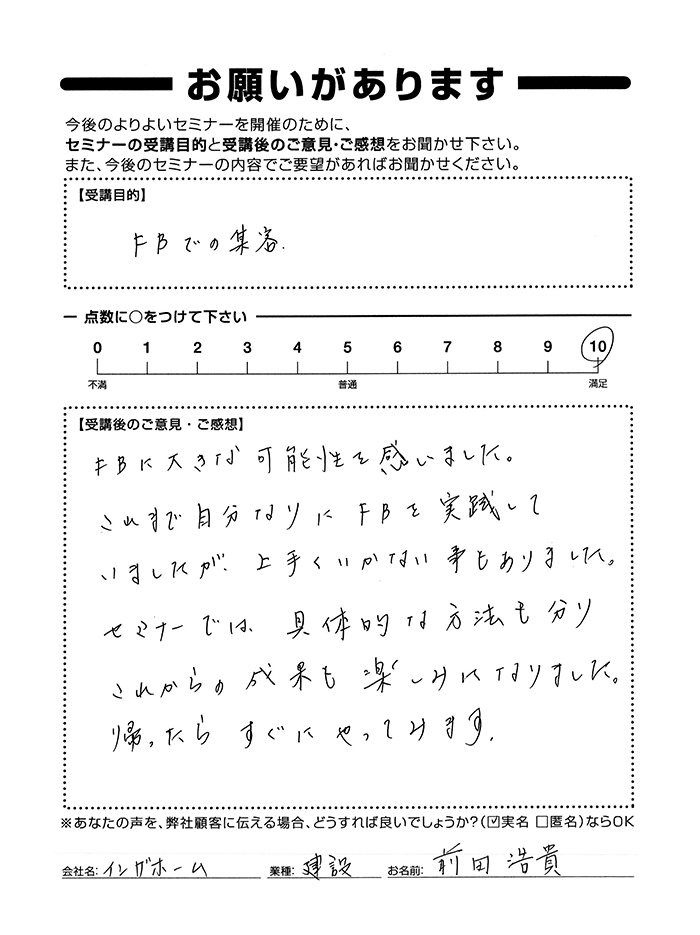 お願いがあります
今後のよりよいセミナーを開催のために、
セミナーの受講目的と受講後のご意見・ご感想をお聞かせ下さい。
また、今後のセミナーの内容でご要望があればお聞かせください。
【受講目的】
FBでの集客.
点数に○をつけて下さい
0 1 2 3 4 5 6 7 8 9 10
不満 普通 満足
【受講後のご意見・ご感想】
FBに大きな可能性を感いました。
これまで自分なりにFBを実践して
いましたが、上手くいかない事もありました。
セミナーでは、具体的な方法も分り
これからの成果も楽しみになりました。
帰ったらすぐにやってみます.
※あなたの声を、弊社顧客に伝える場合、どうすれば良いでしょうか?(☑実名 □匿名)ならOK
会社名: イングホーム 業種: 建設 お名前: 前田 浩貴